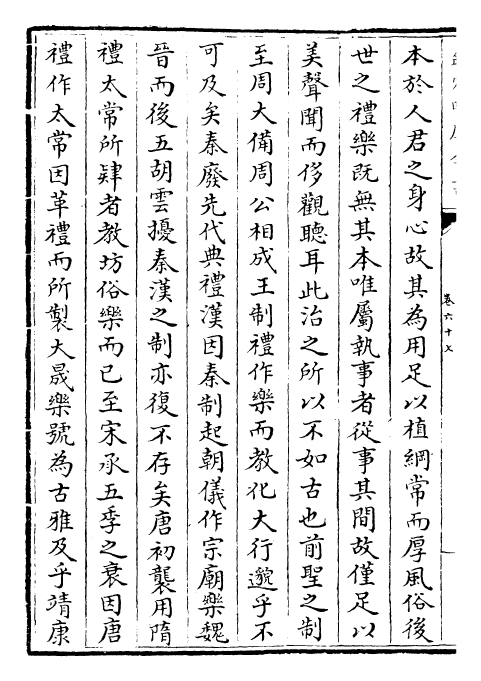 本於人君之身心故其為用足以植綱常而厚風俗後
世之禮樂既無其本唯屬執事者從事其間故僅足以
美聲聞而侈觀聽耳此治之所以不如古也前聖之制
至周大備周公相成王制禮作樂而教化大行邈乎不
可及矣秦廢先代典禮漢因秦制起朝儀作宗廟樂魏
晉而後五胡雲擾秦漢之制亦復不存矣唐初襲用隋
禮太常所肄者教坊俗樂而已至宋承五季之衰因唐
禮作太常因革禮而所製大晟樂號為古雅及乎靖康
卷六十七